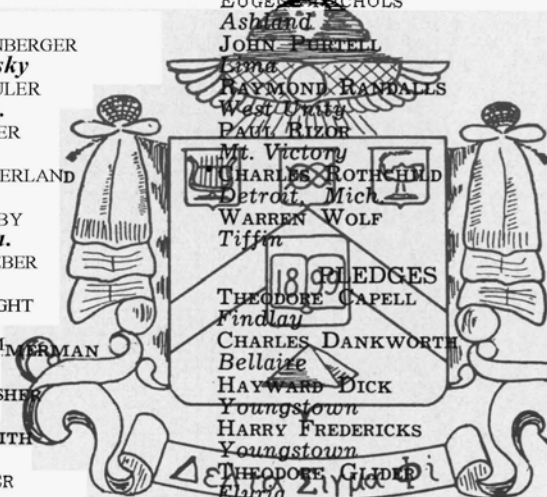 NBERGER
sky
ULER
ER
ERLAND
BY
a.
EBER
GHT
MMERMAN
SHER
ITH
ER
EUGENE NICHOLS
Ashland
JOHN PURTELL
Lima
RAYMOND RANDALLS
West Unity
PAUL RIZOR
Mt. Victory
CHARLES ROTHCHILD
Detroit, Mich.
WARREN WOLF
Tiffin
PLEDGES
THEODORE CAPELL
Findlay
CHARLES DANKWORTH
Bellaire
HAYWARD DICK
Youngstown
HARRY FREDERICKS
Youngstown
THEODORE GLIDER
Elyria
1899
Δελτα Σιγμα Φι